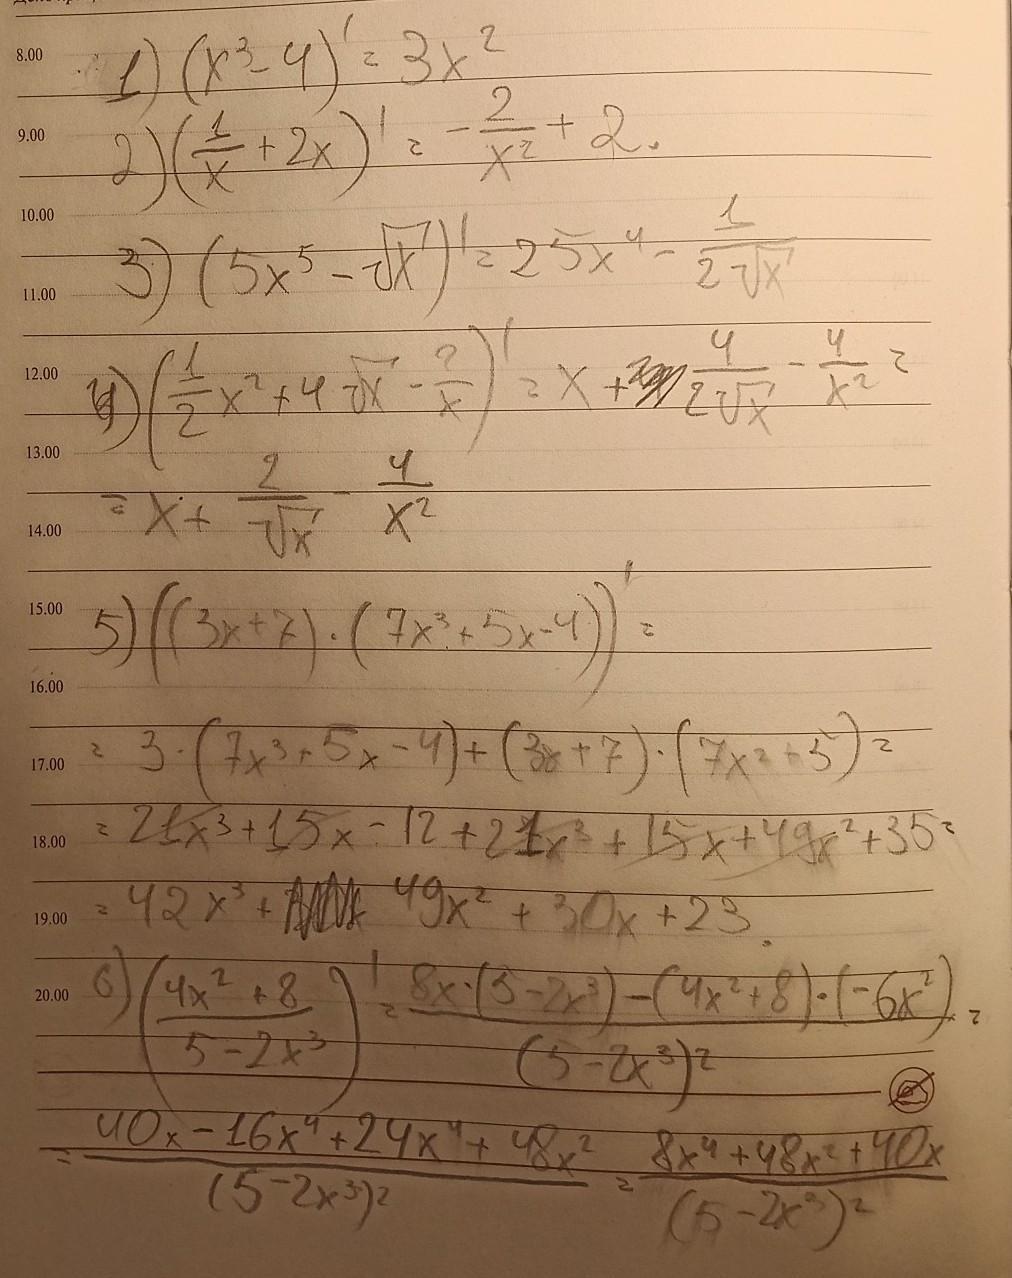 8.00 1) (x³-4)' = 3x²
9.00 2) (1/x + 2x)' = -2/x² + 2.
10.00
11.00 3) (5x⁵ - √x)' = 25x⁴ - 1/(2√x)
12.00 4) (1/2 x² + 4√x - 2/x)' = x + 4/(2√x) - 4/x² =
13.00
14.00 = x + 2/√x - 4/x²
15.00 5) ((3x+7)·(7x³+5x-4))' =
16.00
17.00 = 3·(7x³+5x-4)+(3x+7)·(7x²+5) =
18.00 = 21x³+15x-12+21x³+15x+49x²+35 =
19.00 = 42x³ + 49x² + 30x + 23.
20.00 6) ((4x²+8)/(5-2x³))' = (8x·(5-2x³)-(4x²+8)·(-6x²))/(5-2x³)² =
= (40x-16x⁴+24x⁴+48x²)/(5-2x³)² = (8x⁴+48x²+40x)/(5-2x³)²